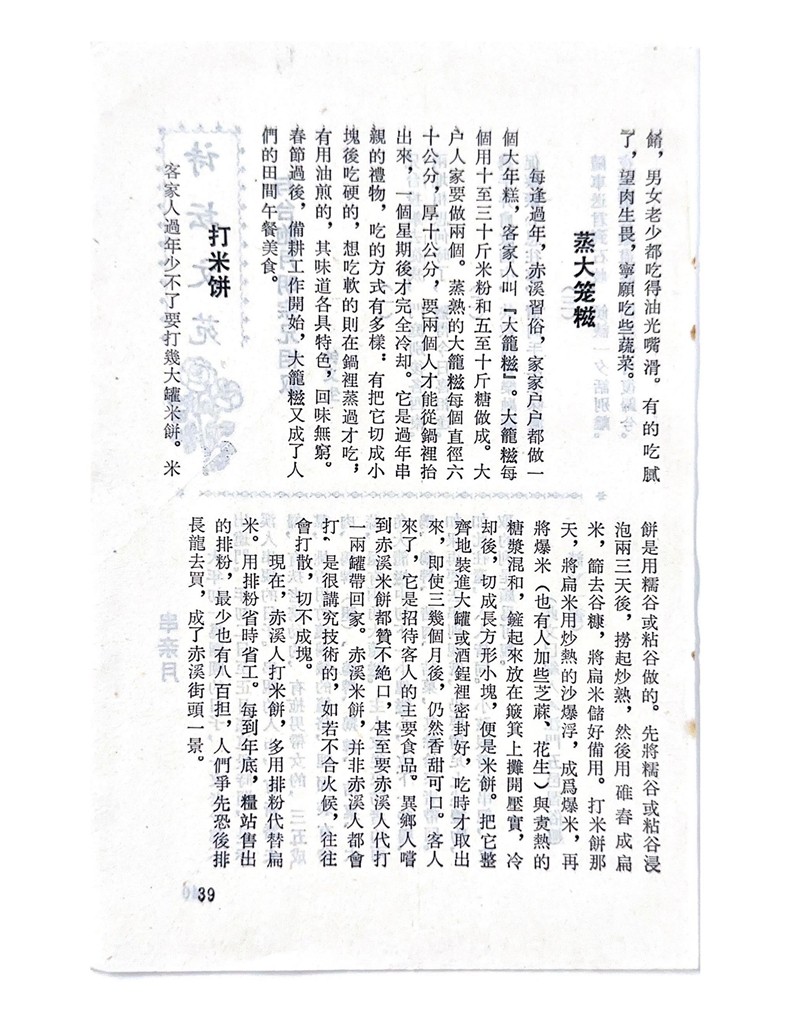 餚，男女老少都吃得油光嘴滑。有的吃膩
了，望肉生畏，寧願吃些蔬菜。
蒸大笼糍
每逢過年，赤溪習俗，家家户户都做一
個大年糕，客家人叫『大籠糍』。大籠糍每
個用十至三十斤米粉和五至十斤糖做成。大
户人家要做兩個。蒸熟的大籠糍每個直徑六
十公分，厚十公分，要兩個人才能從鍋裡抬
出來，一個星期後才完全冷却。它是過年串
親的禮物，吃的方式有多樣：有把它切成小
塊後吃硬的，想吃軟的則在鍋裡蒸過才吃；
有用油煎的，其味道各具特色，回味無窮。
春節過後，備耕工作開始，大籠糍又成了人
們的田間午餐美食。
打米饼
客家人過年少不了要打幾大罐米餅。米
餅是用糯谷或粘谷做的。先將糯谷或粘谷浸
泡兩三天後，撈起炒熱，然後用碓舂成扁
米，篩去谷糠，將扁米儲好備用。打米餅那
天，將扁米用炒熱的沙爆浮，成爲爆米，再
將爆米（也有人加些芝蔴、花生）與煑熱的
糖漿混和，鏟起來放在簸箕上攤開壓實，冷
却後，切成長方形小塊，便是米餅。把它整
齊地裝進大罐或酒埕裡密封好，吃時才取出
來，即使三幾個月後，仍然香甜可口。客人
來了，它是招待客人的主要食品。異鄉人嚐
到赤溪米餅都贊不絶口，甚至要赤溪人代打
一兩罐帶回家。赤溪米餅，并非赤溪人都會
打，是很講究技術的，如若不合火候，往往
會打散，切不成塊。
現在，赤溪人打米餅，多用排粉代替扁
米。用排粉省時省工。每到年底，糧站售出
的排粉，最少也有八百担，人們爭先恐後排
長龍去買，成了赤溪街頭一景。
39